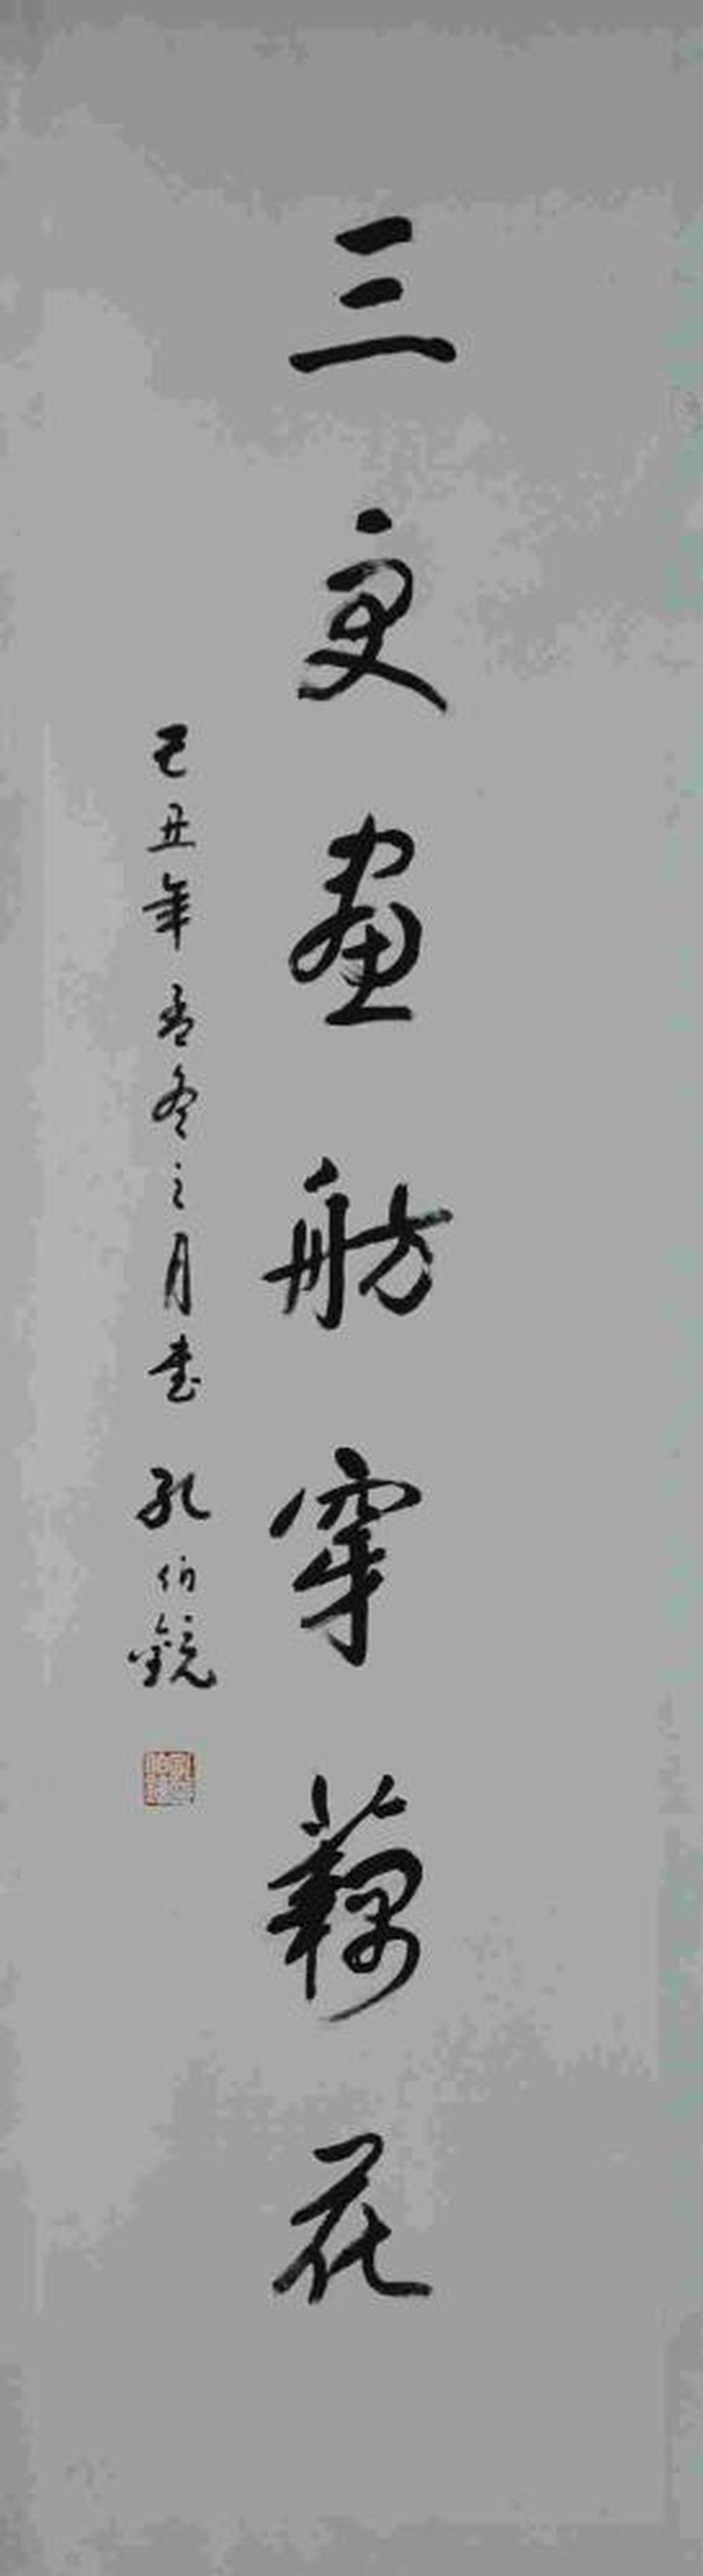 三更畫舫穿藕花
己丑年孟冬之月書 孔伯鏡